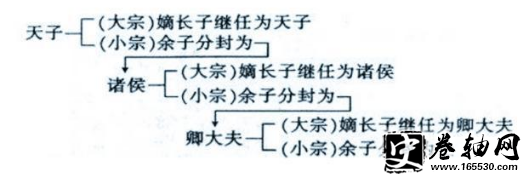 (大宗)嫡长子继任为天子
天子
(小宗)余子分封为
(大宗)嫡长子继任为诸侯
诸侯
(小宗)余子分封为
(大宗)嫡长子继任为卿大夫
卿大夫
(小宗)余子分
史卷轴网
www.165530.com